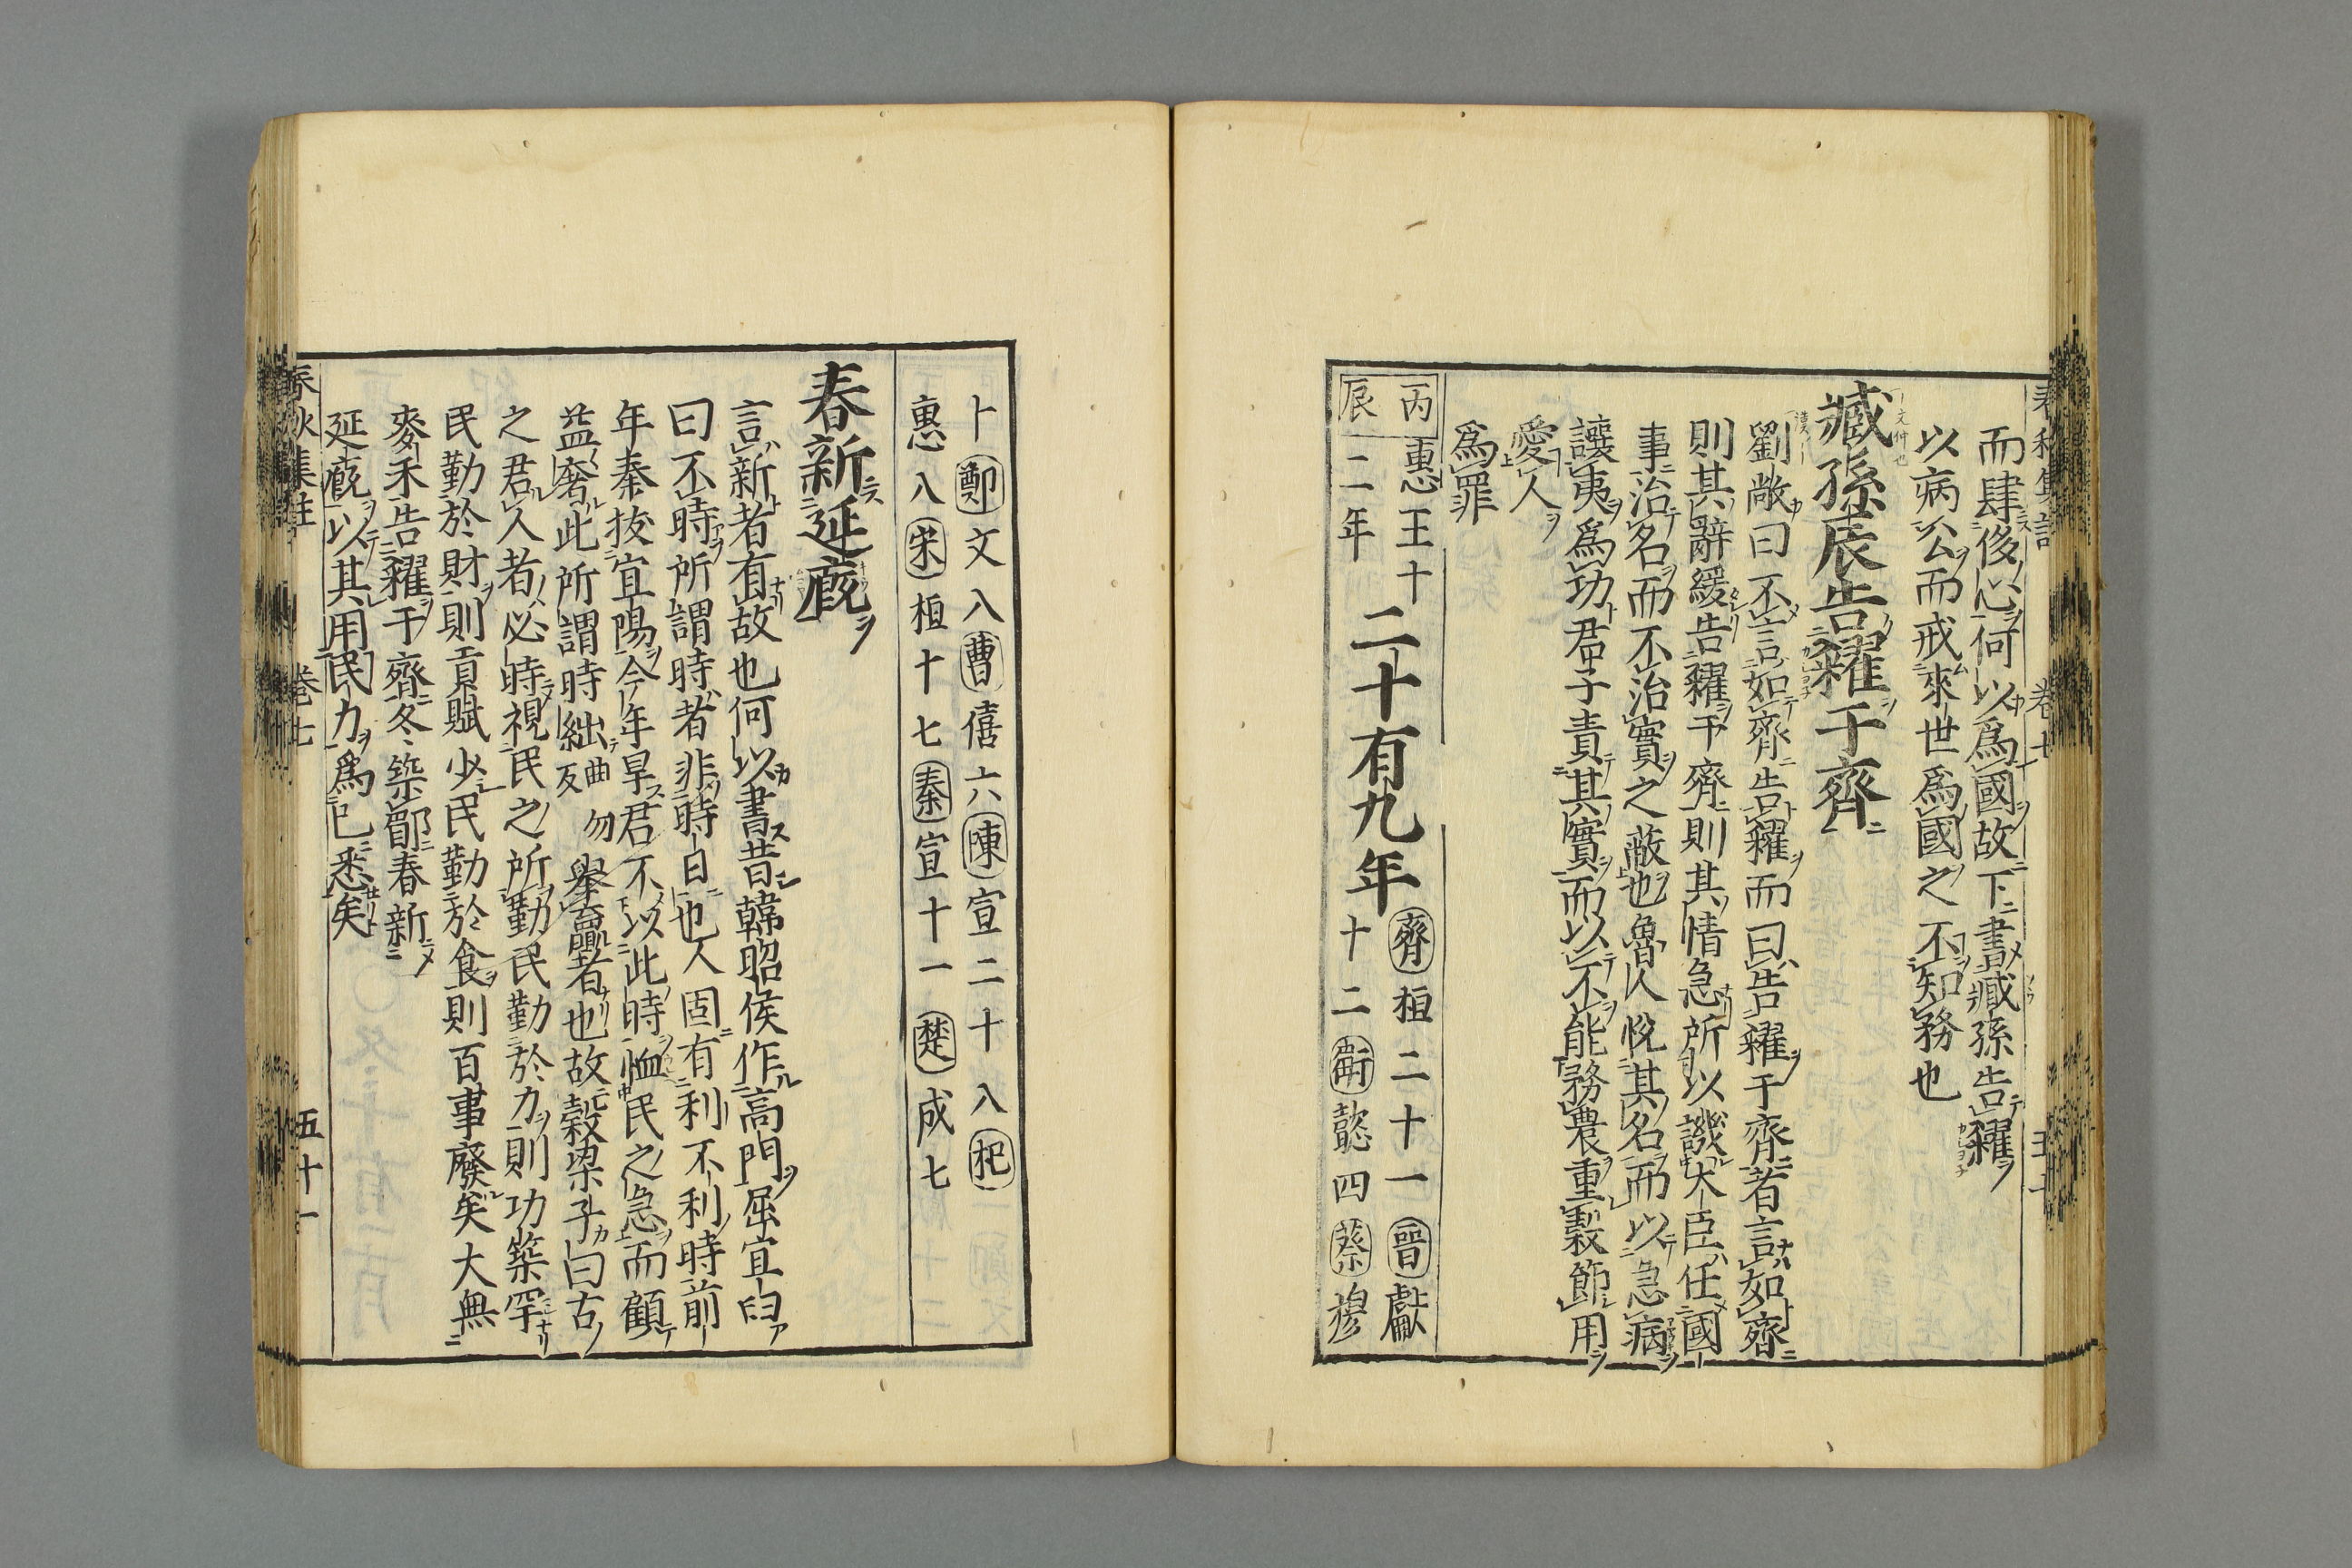 而肆侈心何以爲國故下書臧孫告糴
以病公而戒來世爲國之不知務也
臧孫辰告糴于齊
劉敞曰不言如齊告糴而曰告糴于齊者言如齊
則其辭緩告糴于齊則其情急所以譏大臣任國
事治名而不治實之蔽也魯人悅其名而以急病
讓夷爲功君子責其實而以不能務農重穀節用
愛人
爲罪
丙辰
惠王十二年
二十有九年
齊桓二十一晉獻十二衞懿四蔡穆
卜鄭文八曹僖六陳宣二十八杞
惠八宋桓十七秦宣十一楚成七
春新延廐
言新者有故也何以書昔韓昭侯作高門屈宜臼
曰不時所謂時者非時日也人固有利不利時前
年秦拔宜陽今年旱君不以此時恤民之急而顧
益奢此所謂時絀曲勿反舉贏者也故穀梁子曰古
之君人者必時視民之所勤民勤於力則功築罕
民勤於財則貢賦少民勤於食則百事廢矣大無
麥禾告糴于齊冬築郿春新
延廐以其用民力爲已悉矣
春秋集註
卷七
五十一